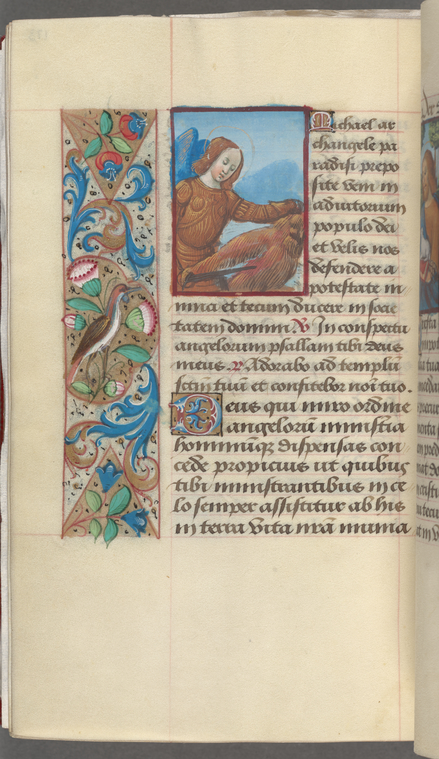 Michael ar
changele pa
radisi prepo
site veni in
adiutorium
populo dei
et velis nos
defendere a
potestate in
imici et tecum ducere in socie
tatem domini. V In conspectu
angelorum psallam tibi deus
meus. R Adorabo ad templū
sctm tuū et confitebor noī tuo.
Deus qui miro ordine
angelorū ministia
hominūqz dispensas con
cede propicius ut quibus
tibi ministrantibus in ce
lo semper assistitur ab his
in terra vita nrā munia